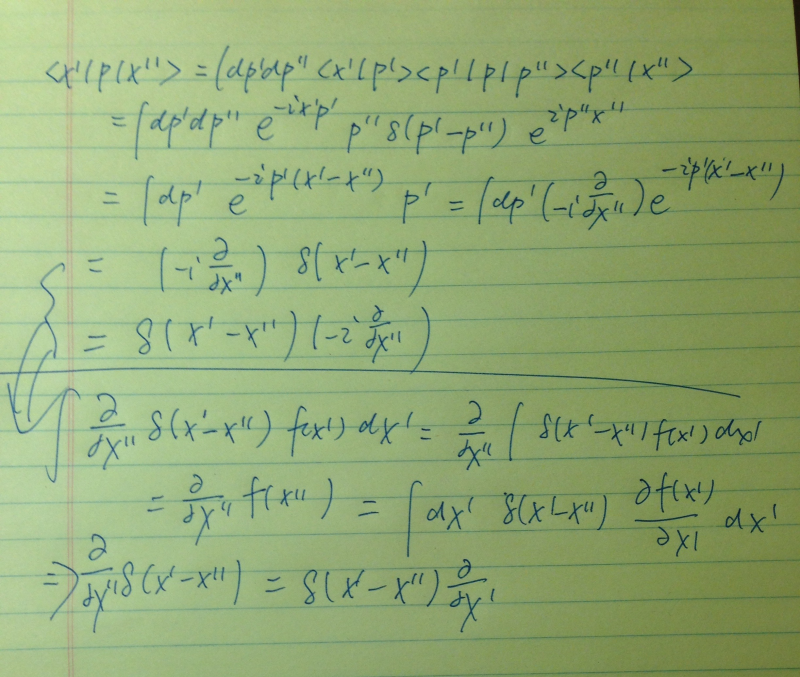 <x'|p|x''> = ∫dp'dp'' <x'|p'><p'|p|p''><p''|x''>
= ∫dp'dp'' e^{-ix'p'} p'' δ(p'-p'') e^{ip''x''}
= ∫dp' e^{-ip'(x'-x'')} p' = ∫dp' (-i ∂/∂x'') e^{-ip'(x'-x'')}
= (-i ∂/∂x'') δ(x'-x'')
= δ(x'-x'') (-i ∂/∂x'')
∫ ∂/∂x'' δ(x'-x'') f(x') dx' = ∂/∂x'' ∫ δ(x'-x'') f(x') dx'
= ∂/∂x'' f(x'') = ∫ dx' δ(x'-x'') ∂f(x')/∂x' dx'
⇒ ∂/∂x'' δ(x'-x'') = δ(x'-x'') ∂/∂x'